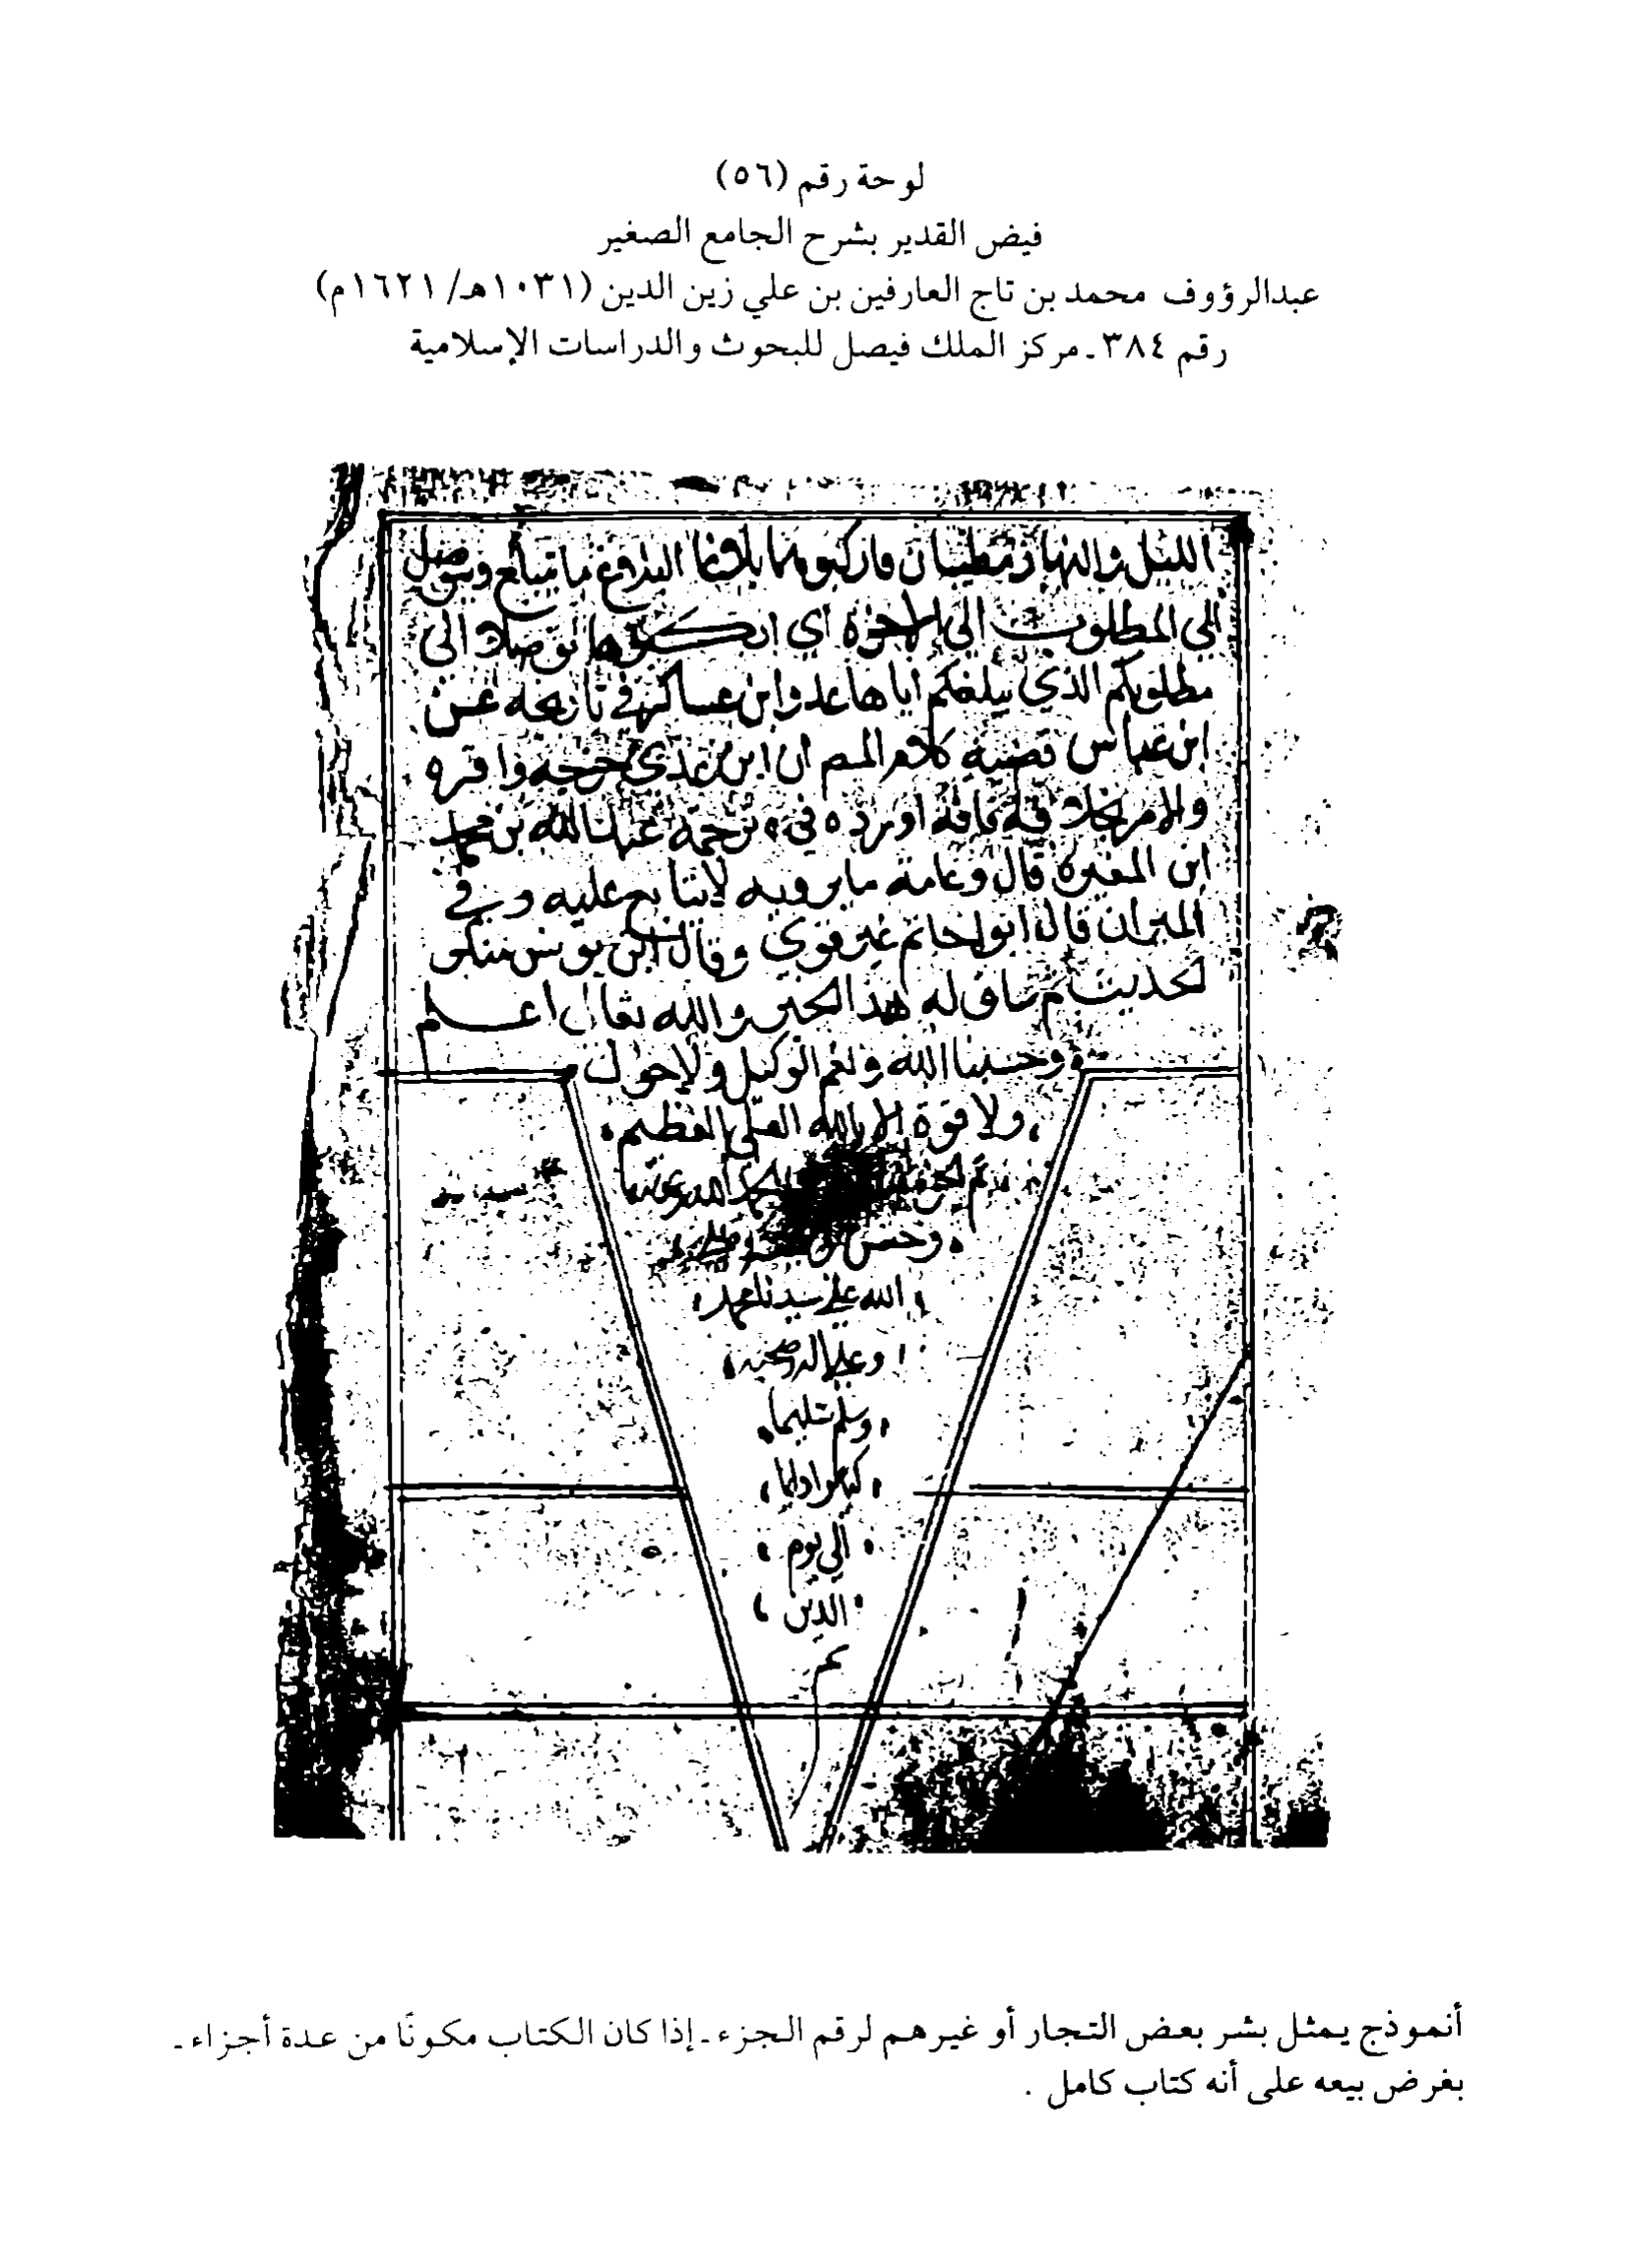 لوحة رقم (٥٦)
فيض القدير بشرح الجامع الصغير
عبدالرؤوف محمد بن تاج العارفين بن علي زين الدين (١٠٣١هـ/١٦٢١م)
رقم ٣٨٤ ـ مركز الملك فيصل للبحوث والدراسات الإسلامية
الليل والنهار مطيتان فاركبوهما بلاغا
الي المطلوب الي الاخرة اي اركبوها توصلا الى
مطلوبكم الذي يبلغكم اياها عد وابن عساكر في تاريخه عن
ابن عباس قضية كلام المص ان ابن عدي خرجه واقره
والامر بخلافه فانه اورده في ترجمة عبد الله بن محمد
ابن المغيرة قال وعامة ما يرويه لا يتابع عليه وفي
الميزان قال ابو حاتم غير قوي وقال ابن يونس منكر
لحديث ثم ساق له هذا الخبر والله تعالى اعلم
وحسبنا الله ونعم الوكيل ولا حول
ولا قوة الا بالله العلي العظيم
وحسن
الله على سيدنا محمد
وعلى اله وصحبه
وسلم تسليما
كثيرا دايما
الي يوم
الدين
تم
أنموذج يمثل بشر بعض التجار أو غيرهم لرقم الجزء ـ إذا كان الكتاب مكونًا من عدة أجزاء ـ
بغرض بيعه على أنه كتاب كامل .